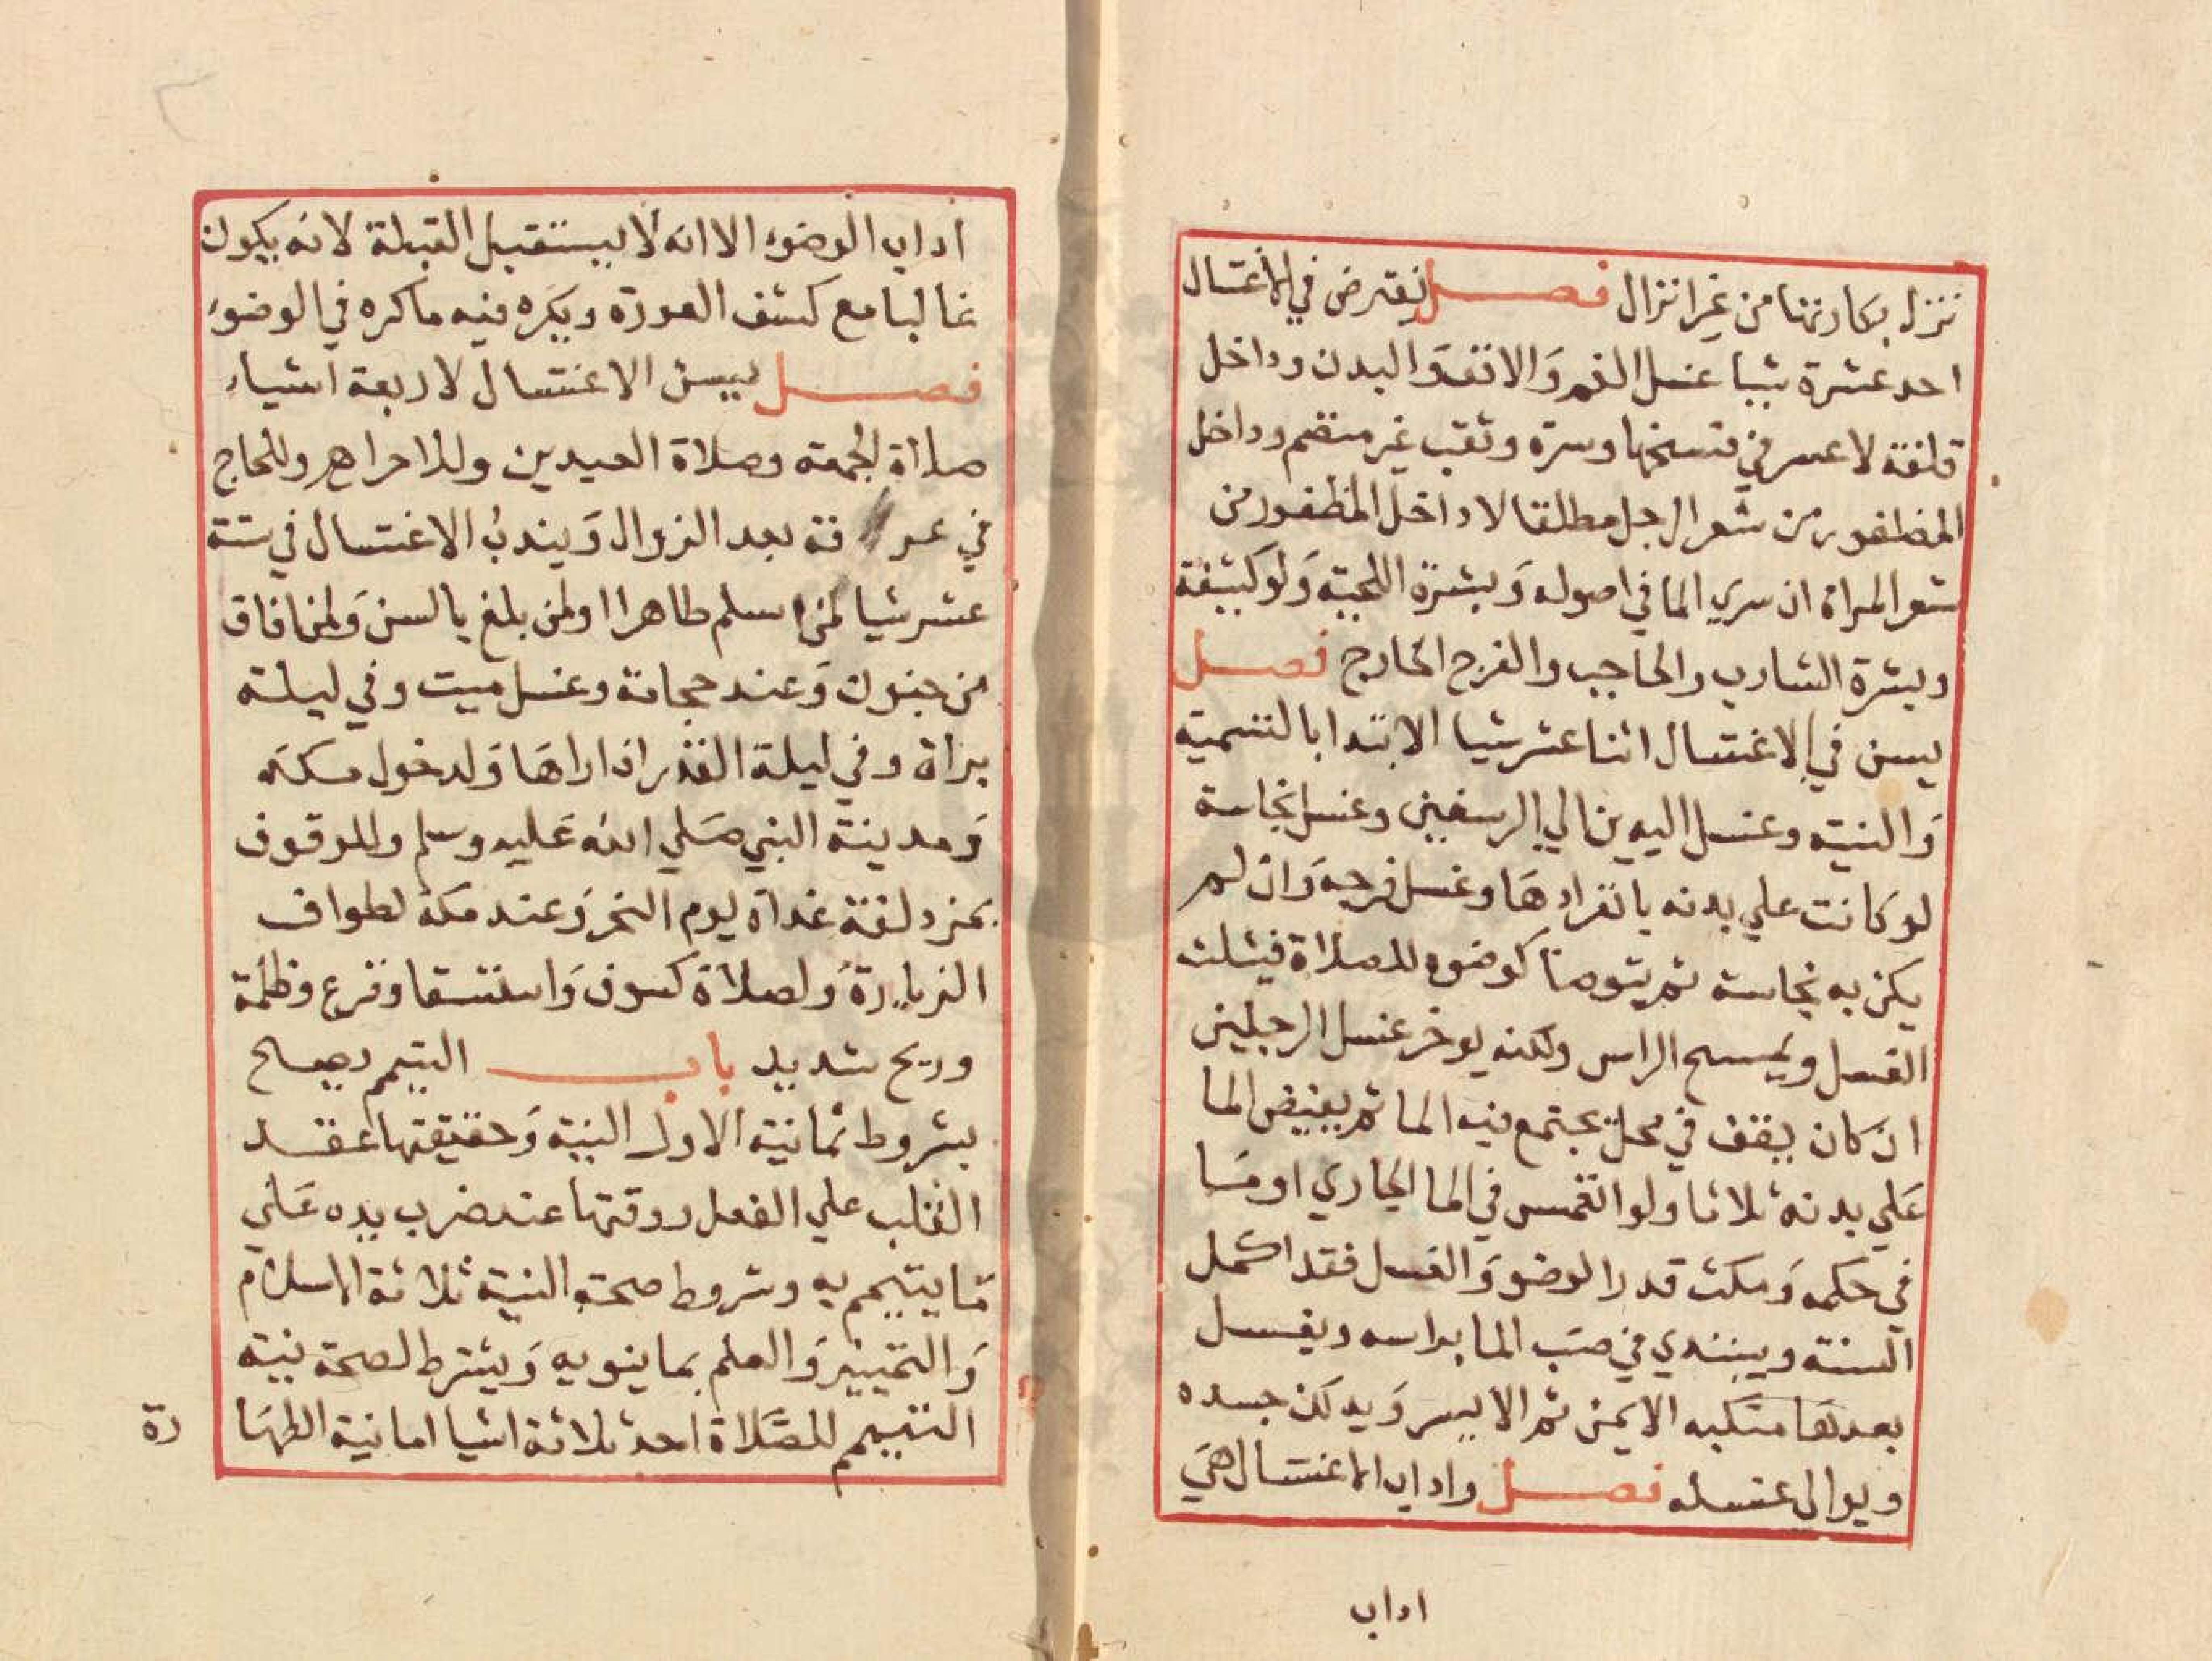 تزل بكارتها من غير انزال فصل يفترض في الاغتسال
احد عشرة شيا غسل الفم وَالانف وَالبدن وداخل
قلفة لا عسر في فسخها وسرة وثقب غير منضم وداخل
المضفور من شعر الرجل مطلقا لا داخل المظفور من
شعر المراة ان سري الما في اصوله وَبشرة اللحية وَلو كثيفة
وبشرة الشارب والحاجب والفرج الخارج فصل
يسن في الاغتسال اثنا عشر شيا الابتدا بالتسمية
وَالنية وغسل اليدين الي الرسغين وغسل نجاسة
لو كانت علي بدنه بانفرادهَا وغسل فرجه وَان لم
يكن به نجاسة ثم يتوضا كوضوءِ للصلاة فيثلث
الغسل ويمسح الراس ولكنه يوخر غسل الرجلين
ان كان يقف في محل يجتمع فيه الما ثم يفيض الما
عَلي بدنه ثلاثا ولو انغمس في الما الجاري او مَا
في حكمه وَمكث قدر الوضو وَالغسل فقد اكمل
السنة ويبتدي في صَب الما براسه ويغسل
بعدهَا منكبه الايمن ثم الايسر وَيدلك جسده
ويوالي غسله فصل واداب الاغتسال هيَ
اداب
اداب الوضوء الا انه لا يستقبل القبلة لانه يكون
غالبا مع كشف العورة ويكره فيه ما كره في الوضوء
فصل يسن الاغتسال لاربعة اشياء
صلاة الجمعه وصلاة العيدين وللاحرام وللحاج
في عر فة بعد الزوال وَيندبُ الاغتسال في ستة
عشر شيا لمن اسلم طاهرا اولمن بلغ بالسن وَلمن افاق
من جنون وَعند حجامة وغسل ميت وفي ليلة
براة وفي ليلة القدر اذا راهَا وَلدخول مكة
وَمدينة النبي صَلي الله عَليه وسلم وللوقوف
بمزدلفة غداة يوم النحر وَعند مكة لطواف
الزيارة وَلصلاة كسوف وَاستسقا وفزع وظلمة
وريح شديد باب التيمم يصح
بشروط ثمانية الاول النية وَحقيقتها عقد
القلب علي الفعل ووقتها عند ضرب يده عَلي
مَا يتيمم به وشروط صحة النية ثلاثة الاسلام
وَالتمييز وَالعلم بما ينويه وَيشترط لصحة نية
التيمم للصَّلاة احد ثلاثة اشيا اما نية الطهَا
رة